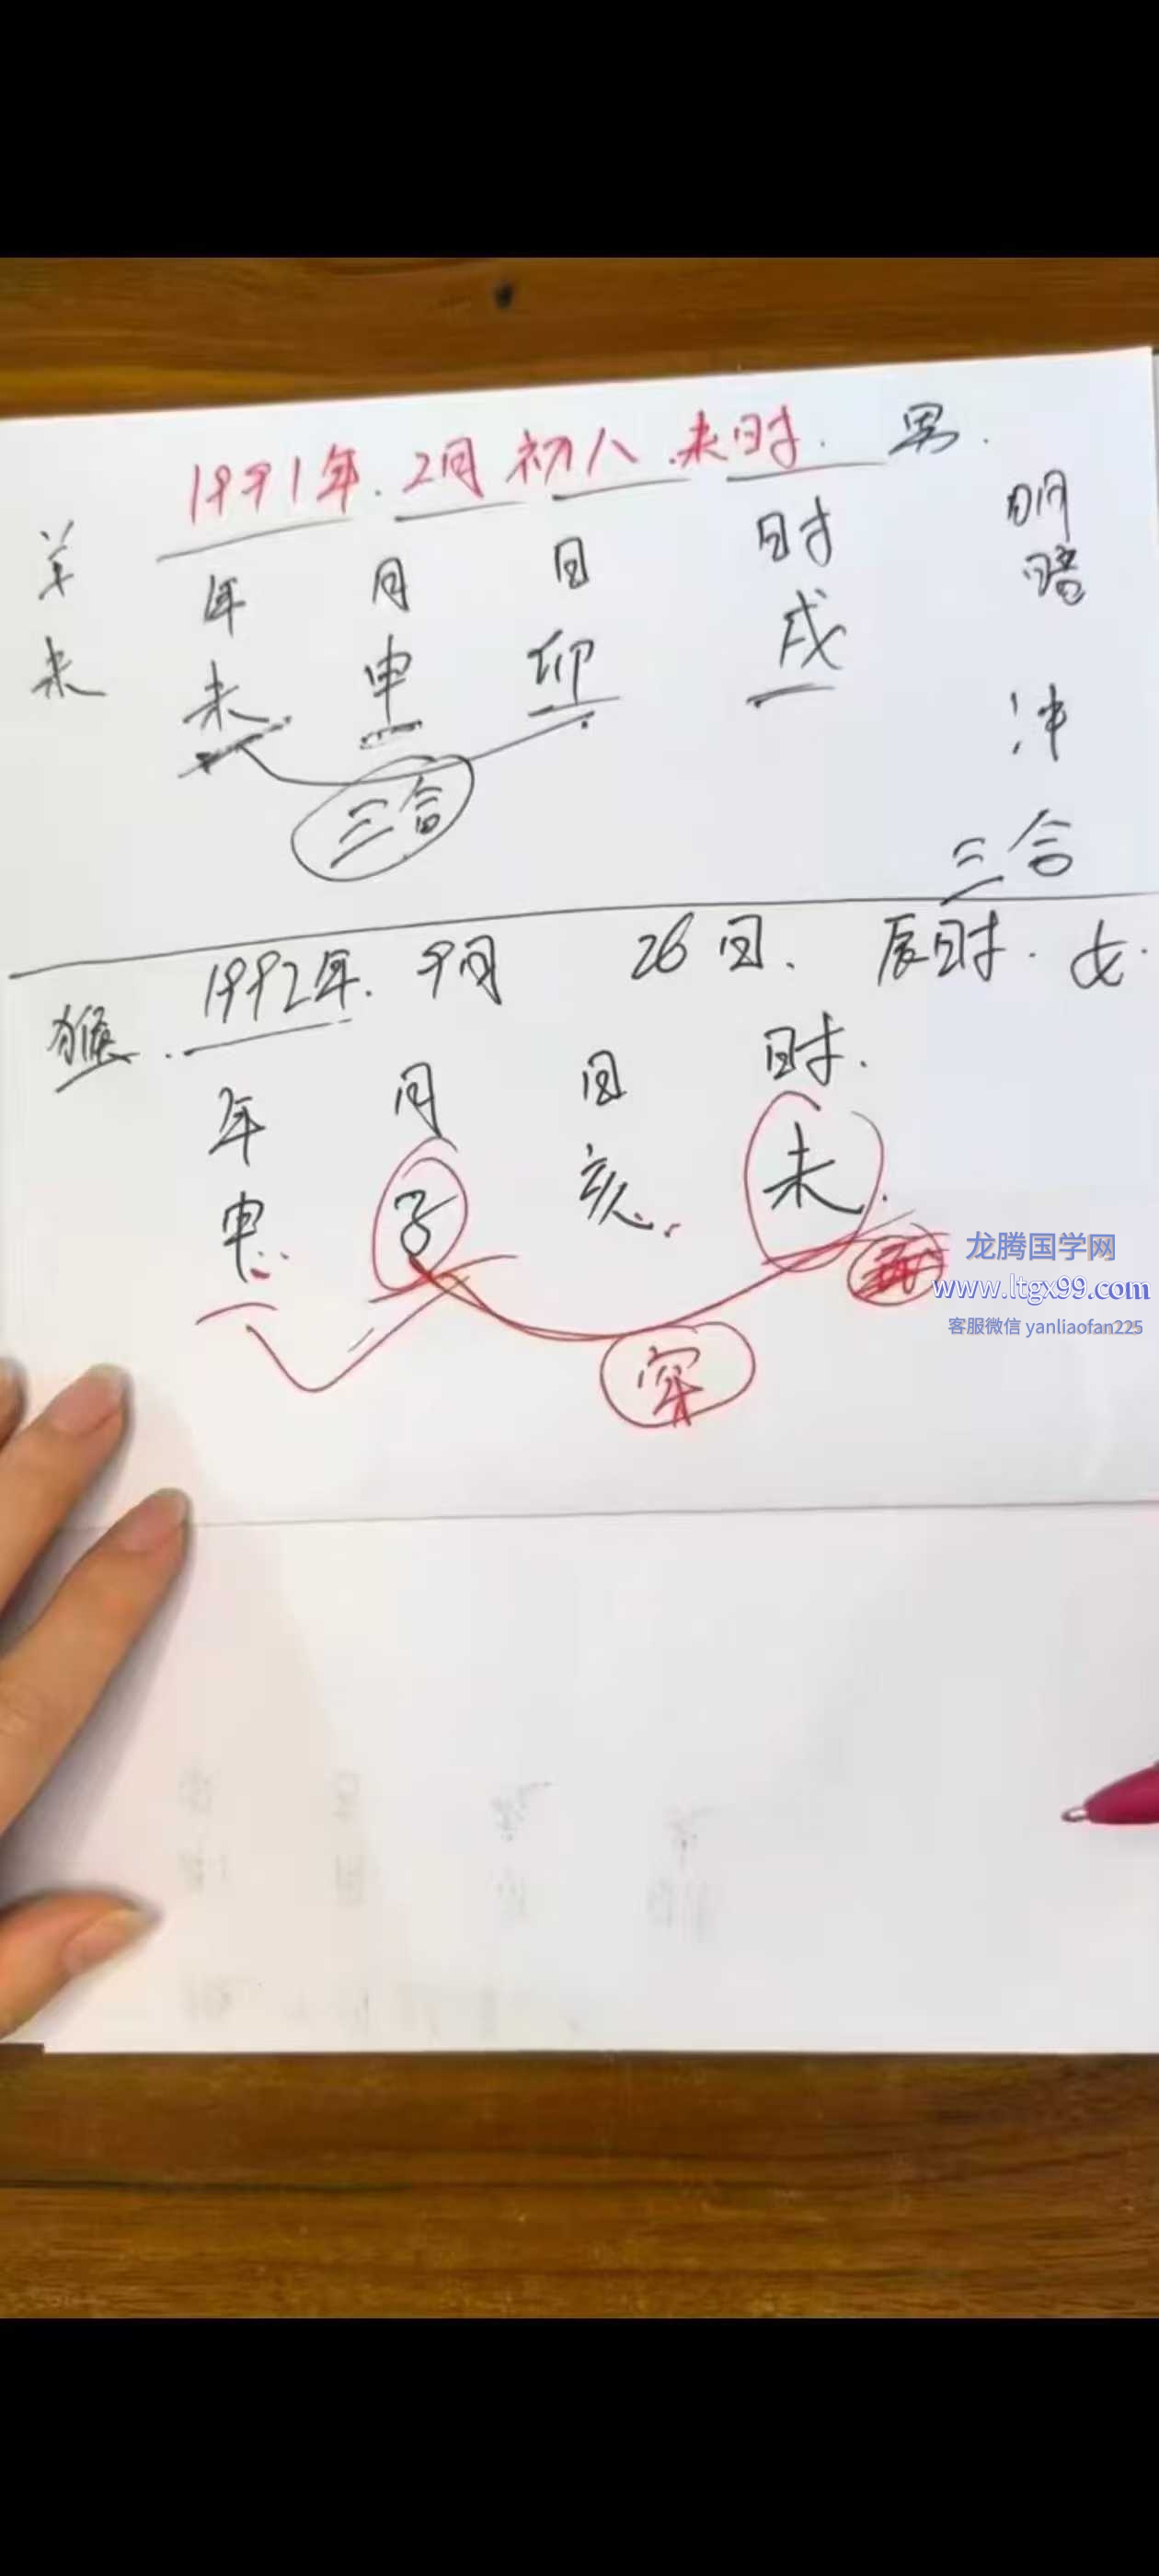 1991年.2月初八.未时. 男.
羊 年 月 日 时 明
未 未 申 卯 戌 暗
三合 冲
三合
1992年. 9月 26日. 辰时. 女.
猴. 年 月 日 时.
申 子 亥 未
穿
龙腾国学网
www.ltgx99.com
客服微信 yanliaofan225